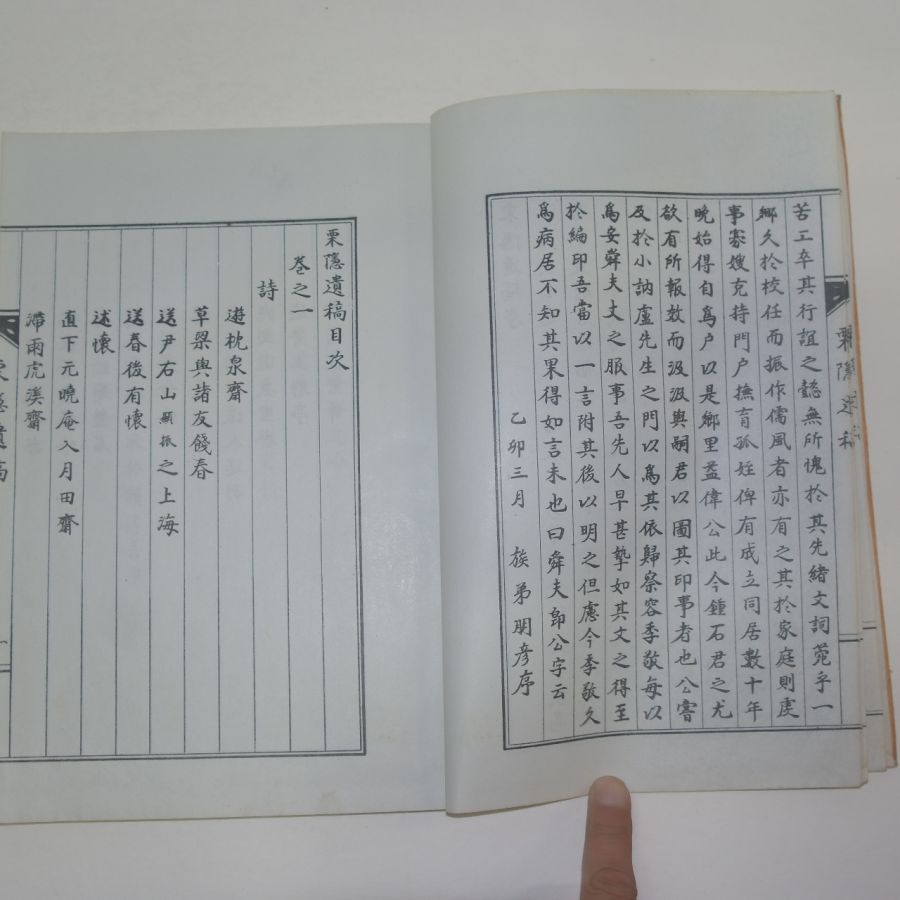 苦工卒其行誼之懿無所愧於其先緖文詞菀乎一
鄉久於校任而振作儒風者亦有之其於家庭則虔
事寡嫂克持門戶撫育孤姪俾有成立同居數十年
晩始得自爲戶以是鄉里益偉公此今鍾石君之尤
欲有所報效而汲汲與嗣君以圖其印事者也公嘗
及於小訥盧先生之門以爲其依歸察容季敬每以
爲安舜夫丈之服事吾先人早甚摯如其文之得至
於編印吾當以一言附其後以明之但慮今季敬久
爲病居不知其果得如言未也曰舜夫卽公字云
乙卯三月 族弟朋彦序
栗隱遺稿
栗隱遺稿目次
卷之一
詩
遊枕泉齋
草㮚與諸友餞春
送尹右山顯振之上海
送春後有懷
述懷
直下元曉庵入月田齋
滯雨虎溪齋
栗隱遺稿
一